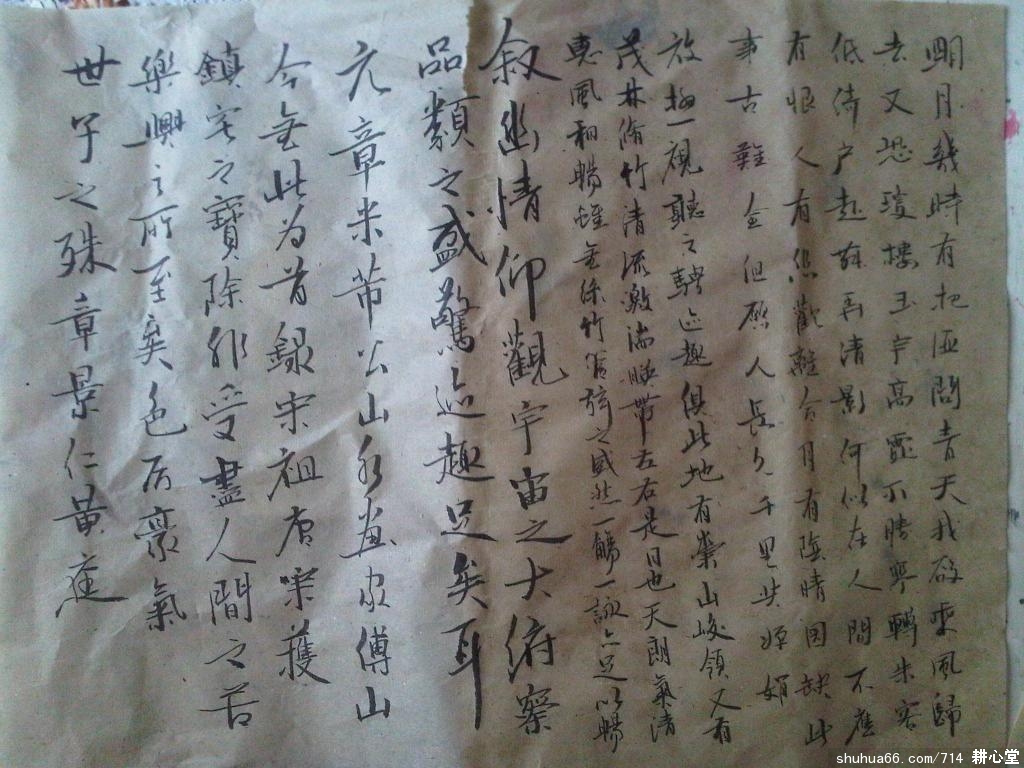 明月幾時有把酒問青天我欲乘風歸
去又恐瓊樓玉宇高處不勝寒轉朱客
低倚户起舞弄清影何似在人間不應
有恨人有悲歡離合月有陰晴圆缺此
事古難全但願人長久千里共嬋娟
放極一視聽之騁迹趣俱此地有崇山峻領又有
茂林脩竹清流激湍暎帶左右是日也天朗氣清
惠風和暢雖無絲竹管弦之盛然一觴一詠亦足以暢
叙幽情仰觀宇宙之大俯察
品類之盛驚迹趣足矣耳
元章米芾公山水画家傅山
今無此为首録宋祖唐宗獲
鎮宅之寶除非受盡人間之苦
樂興之所至矣色厉豪氣
世子之殊章景仁黄
shuhua66.com/714 耕心堂